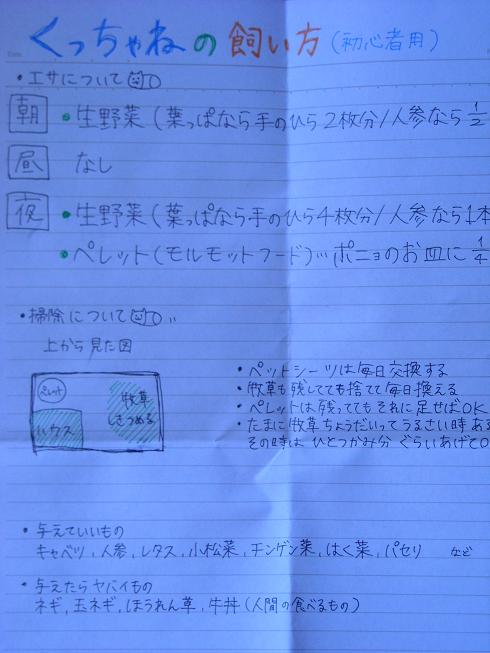 くっちゃねの飼い方(初心者用)
・エサについて
朝 ・生野菜(葉っぱなら手のひら2枚分/人参なら1/2
昼 なし
夜 ・生野菜(葉っぱなら手のひら4枚分/人参なら1本
・ペレット(モルモットフード)…ポニョのお皿に1/4
・掃除について
上から見た図
ペレット
ハウス
牧草
しきつめる
・ペットシーツは毎日交換する
・牧草も残してても捨てて毎日換える
・ペレットは残っててもそれに足せばOK
・たまに牧草ちょうだいってうるさい時ある
その時はひとつかみ分ぐらいあげてO
・与えていいもの
キャベツ,人参,レタス,小松菜,チンゲン菜,はく菜,パセリ など
・与えたらヤバイもの
ネギ,玉ネギ,ほうれん草,牛丼(人間の食べるもの)